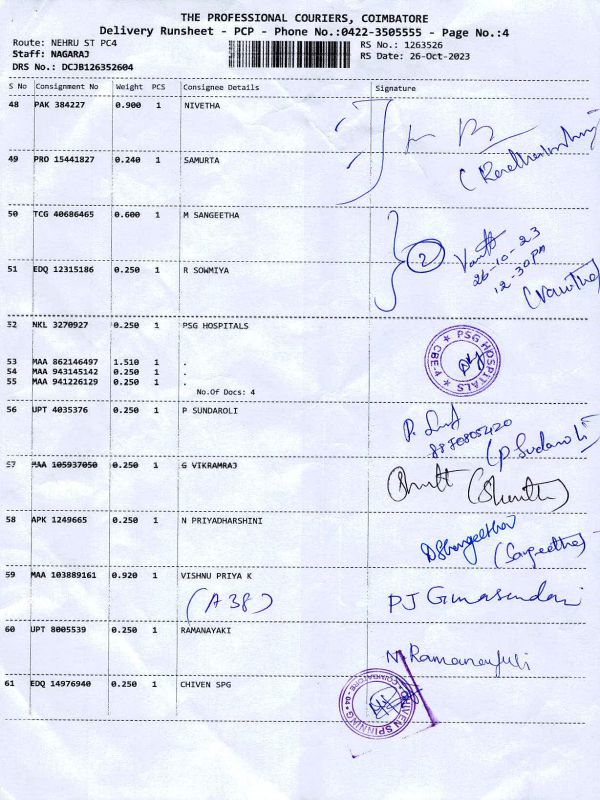 THE PROFESSIONAL COURIERS, COIMBATORE
Delivery Runsheet - PCP - Phone No.:0422-3505555 - Page No.:4
Route: NEHRU ST PC4 RS No.: 1263526
Staff: NAGARAJ RS Date: 26-Oct-2023
DRS No.: DCJB126352604
S No Consignment No Weight PCS Consignee Details Signature
48 PAK 384227 0.900 1 NIVETHA
49 PRO 15441827 0.240 1 SAMURTA
50 TCG 40686465 0.600 1 M SANGEETHA
2
26-10-23
12-30PM
51 EDQ 12315186 0.250 1 R SOWMIYA
(Vanitha)
52 NKL 3270927 0.250 1 PSG HOSPITALS
PSG HOSPITALS
CBE-4
53 MAA 862146497 1.510 1 .
54 MAA 943145142 0.250 1 .
55 MAA 941226129 0.250 1 .
No.Of Docs: 4
56 UPT 4035376 0.250 1 P SUNDAROLI
(P Sudaroli
57 MAA 105937050 0.250 1 G VIKRAMRAJ
58 APK 1249665 0.250 1 N PRIYADHARSHINI
(Sangeetha)
59 MAA 103889161 0.920 1 VISHNU PRIYA K
(A 38) PJ Gunasundari
60 UPT 8005539 0.250 1 RAMANAYAKI
61 EDQ 14976940 0.250 1 CHIVEN SPG
CHIVEN SPINNING
COIMBATORE - 04